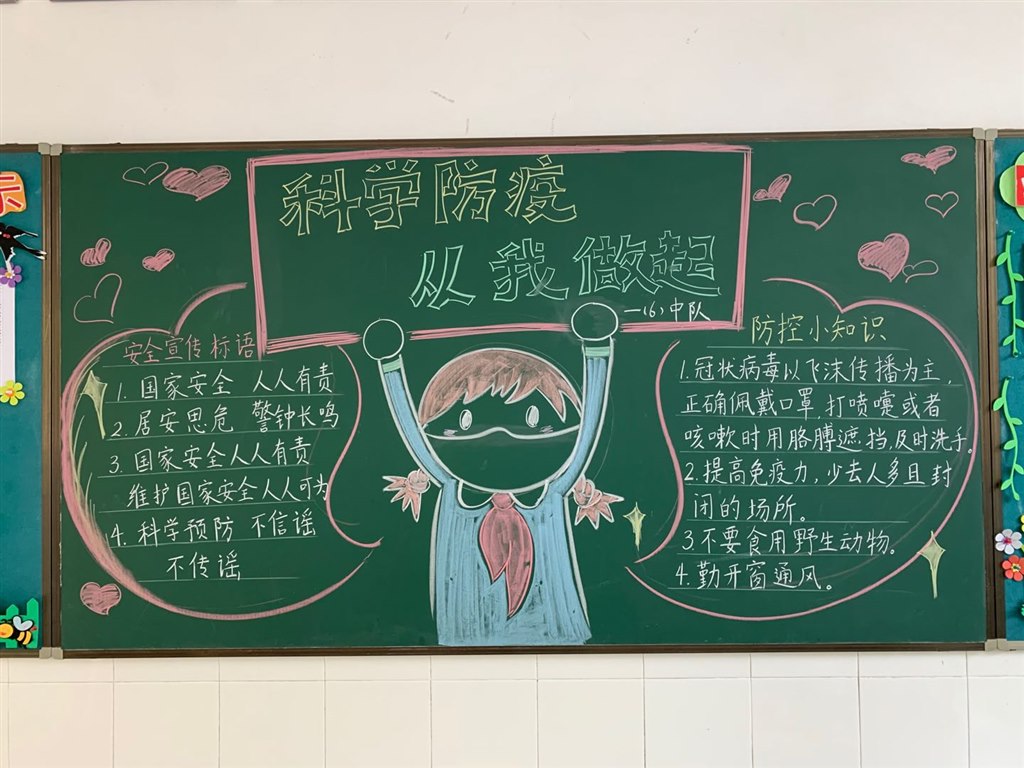 科学防疫
从我做起
一(6)中队
安全宣传标语
1. 国家安全 人人有责
2. 居安思危 警钟长鸣
3. 国家安全人人有责
维护国家安全人人可为
4. 科学预防 不信谣
不传谣
防控小知识
1.冠状病毒以飞沫传播为主,
正确佩戴口罩,打喷嚏或者
咳嗽时用胳膊遮挡,及时洗手。
2.提高免疫力,少去人多且封
闭的场所。
3.不要食用野生动物。
4.勤开窗通风。
示